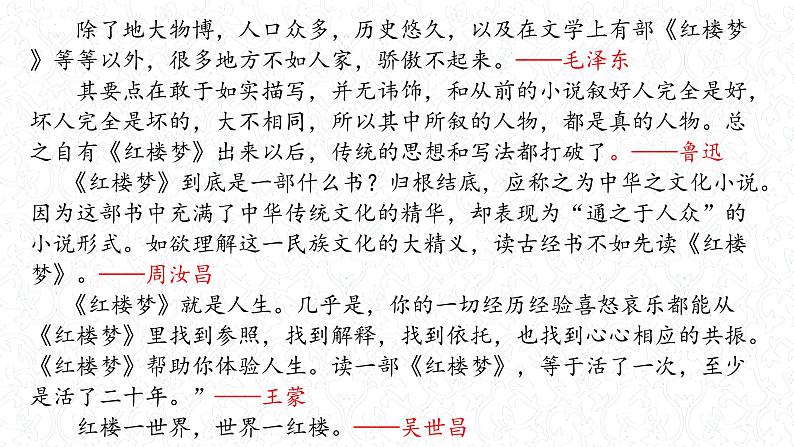 除了地大物博，人口众多，历史悠久，以及在文学上有部《红楼梦
》等等以外，很多地方不如人家，骄傲不起来。——毛泽东
其要点在敢于如实描写，并无讳饰，和从前的小说叙好人完全是好，
坏人完全是坏的，大不相同，所以其中所叙的人物，都是真的人物。总
之自有《红楼梦》出来以后，传统的思想和写法都打破了。——鲁迅
《红楼梦》到底是一部什么书？归根结底，应称之为中华之文化小说。
因为这部书中充满了中华传统文化的精华，却表现为“通之于人众”的
小说形式。如欲理解这一民族文化的大精义，读古经书不如先读《红楼
梦》。——周汝昌
《红楼梦》就是人生。几乎是，你的一切经历经验喜怒哀乐都能从
《红楼梦》里找到参照，找到解释，找到依托，也找到心心相应的共振。
《红楼梦》帮助你体验人生。读一部《红楼梦》，等于活了一次，至少
是活了二十年。”——王蒙
红楼一世界，世界一红楼。——吴世昌